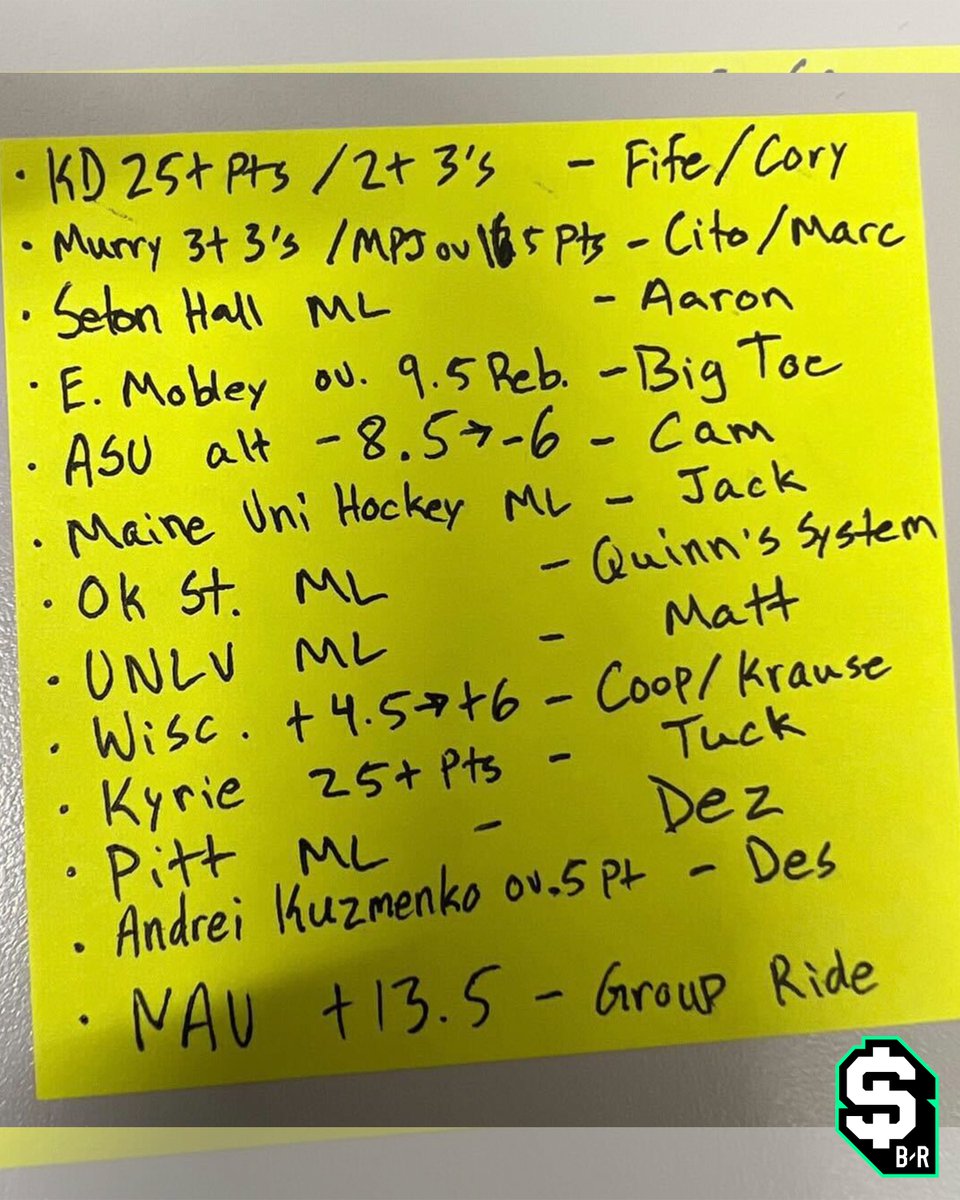 · KD 25+ Pts / 2+ 3's - Fife/Cory
· Murry 3+ 3's / MPJ ov 5 Pts - Cito/Marc
· Seton Hall ML - Aaron
· E. Mobley ov. 9.5 Reb. - Big Toe
· ASU alt -8.5→-6 - Cam
· Maine Uni Hockey ML - Jack
· OK St. ML - Quinn's System
· UNLV ML - Matt
· Wisc. +4.5→+6 - Coop/Krause
· Kyrie 25+ Pts - Tuck
· Pitt ML - Dez
· Andrei Kuzmenko ov .5 Pt - Des
· NAU +13.5 - Group Ride
$
B/R